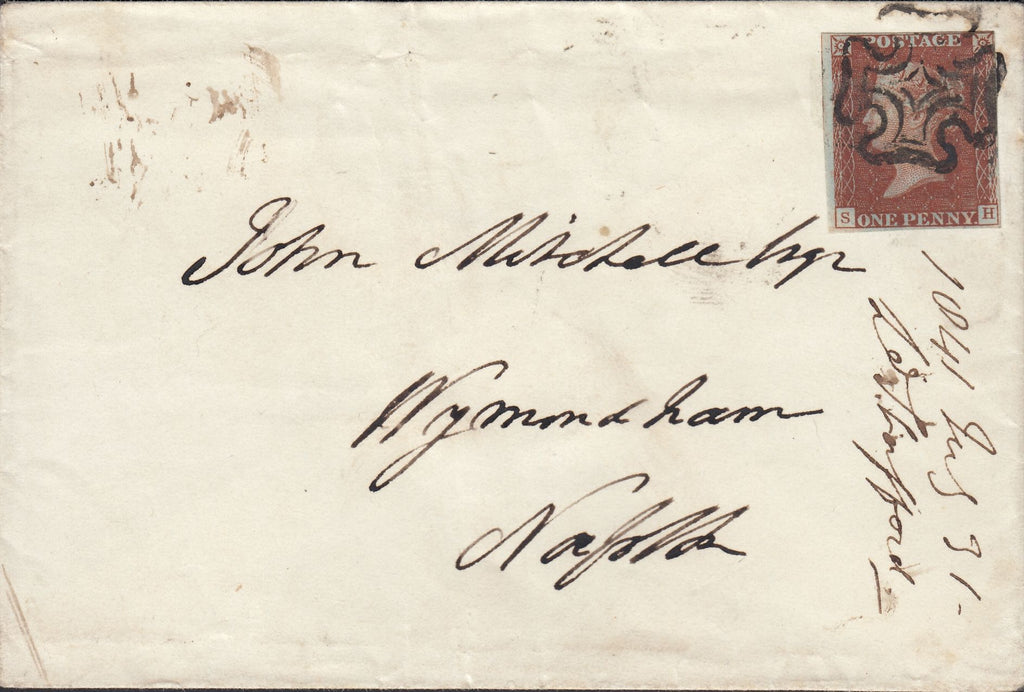 POSTAGE
S ONE PENNY H
John Mitchell Esqr
Wymondham
Norfolk
1841 Aug 31 -
Ld